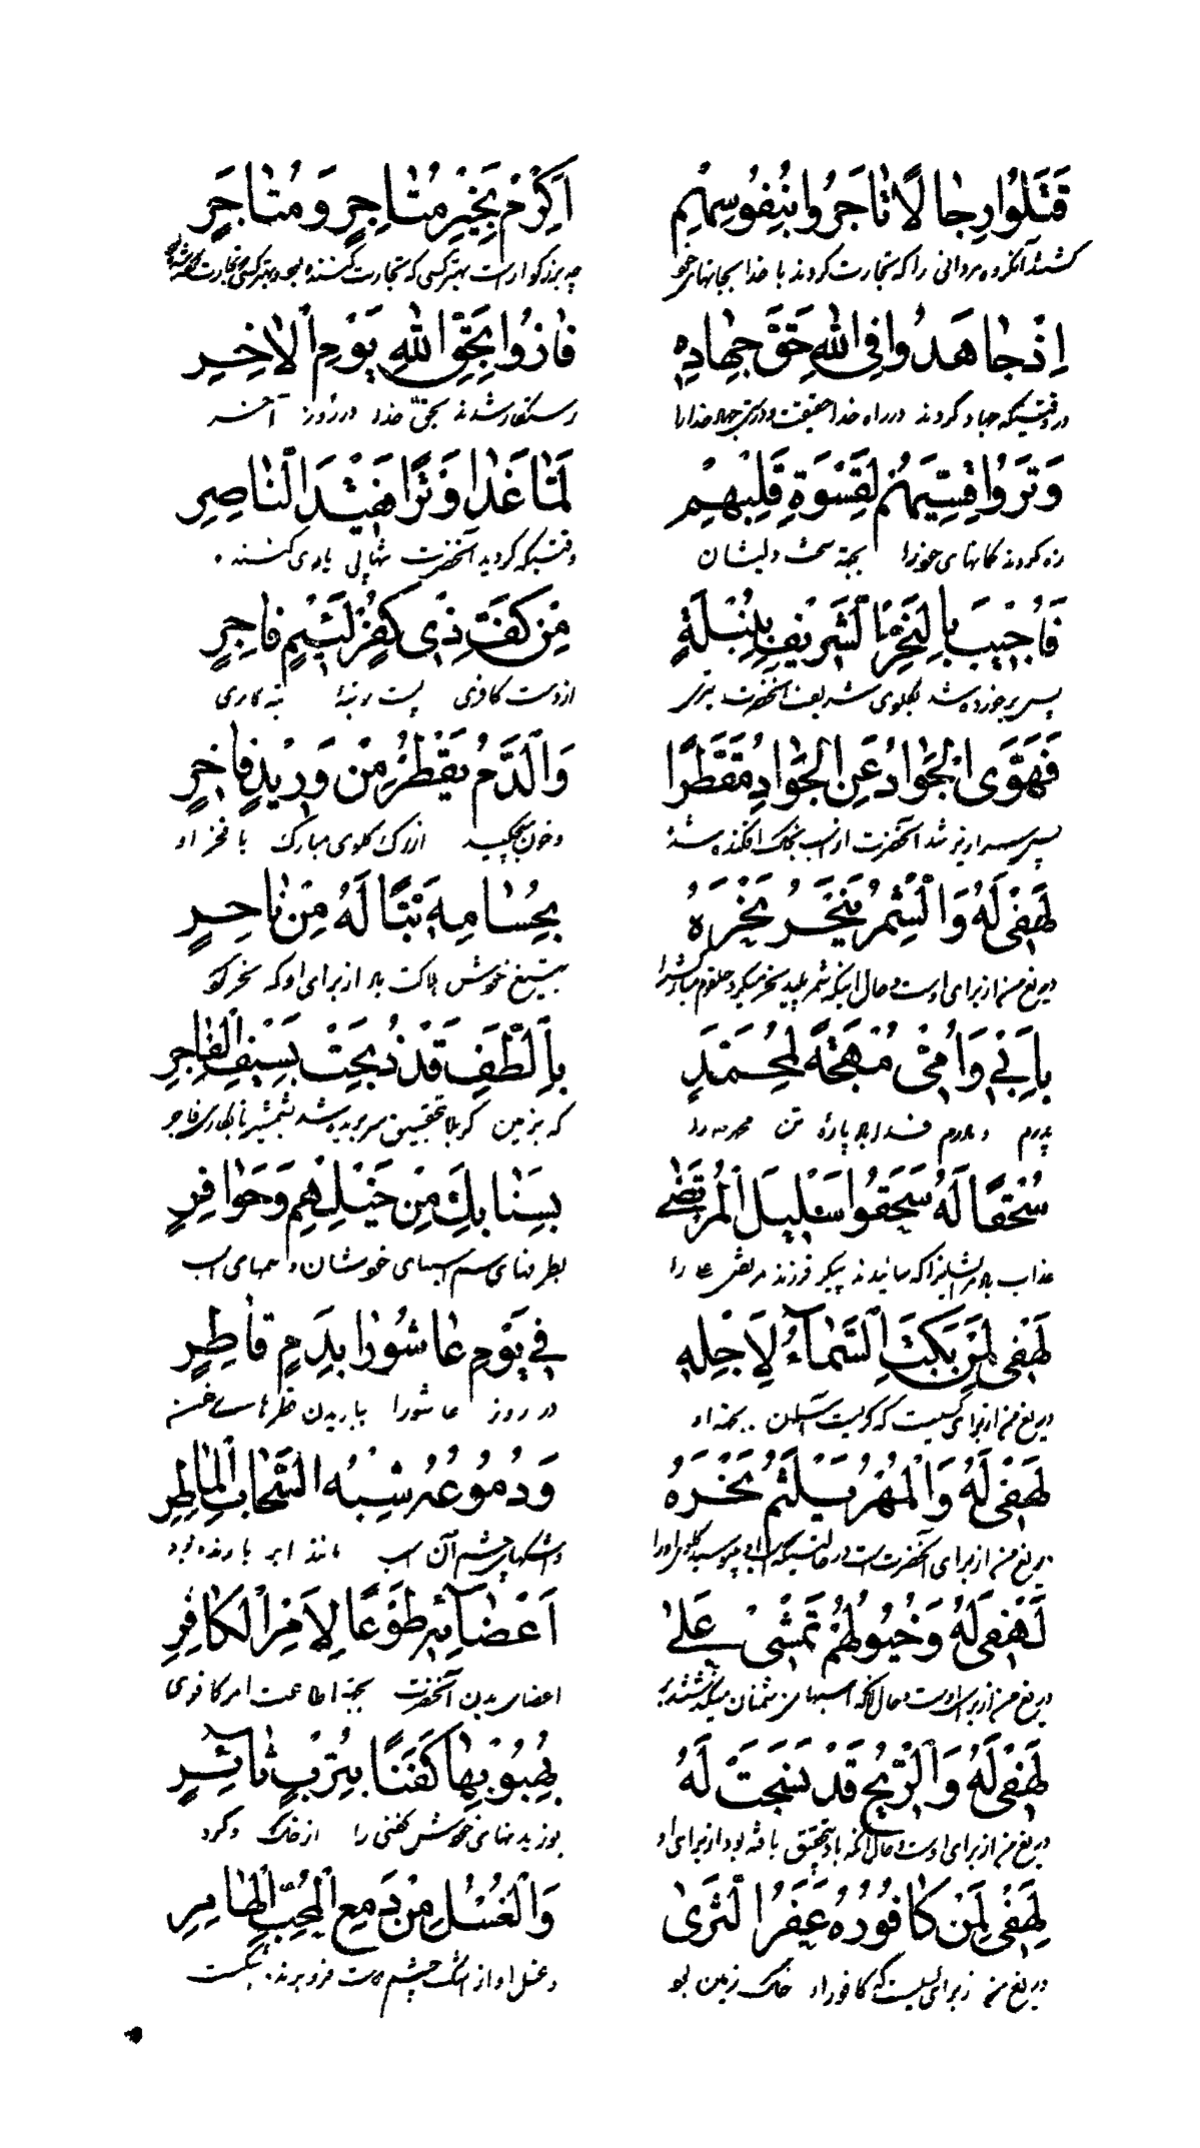 قَتَلُوا رِجالًا تاجَرُوا بِنُفُوسِهِم اَكْرِمْ بِخَيْرِ مُتاجِرٍ وَ مُتاجَرٍ
كشتند آنگروه مردانی را که تجارت کردند با خدا بجانهای خود چه بزرگوار است بهتر کسی که تجارت کننده
اِذْ جاهَدُوا فِی اللهِ حَقَّ جِهادِهِ فازُوا بِحَقِّ اللهِ يَوْمَ الْاٰخِرِ
در وقتیکه جهاد کردند در راه خدا رستگار شدند بحقّ خدا در روز آخر
وَتَرُوا قِسِيَّهُمُ لِقَسْوَةِ قَلْبِهِمْ لَمّا غَدا وَتْرًا فَقيدَ النّاصِرِ
زه کردند کمانهای خود را بجهة سختی دلشان وقتیکه گردید آنحضرت تنها بی یاری کننده
فَاُجيبَ بِالنَّحْرِ الشَّريفِ بِنَبْلَةٍ مِنْ كَفِّ ذی كُفْرٍ لَئيمٍ فاجِرٍ
پس برخورده شد بگلوی شریف آنحضرت تیری از دست کافری پست رتبۀ تبه کاری
فَهَوَى الْجَوادُ عَنِ الْجَوادِ مُقَطَّرًا وَالدَّمُ يَقْطُرُ مِنْ وَريدٍ فاخِرٍ
پس سرازیر شد آنحضرت از اسب بخاک افکنده شده و خون میچکید از رگ گلوی مبارک با فخر او
لَهَفی لَهُ وَالشِّمْرُ يَنْحَرُ نَحْرَهُ بِحُسامِهِ تَبًّا لَهُ مِنْ ناحِرٍ
دریغ من از برای اوست و حال اینکه شمر پلید نحر میکرد حلقوم بتیغ خویش هلاکت باد از برای او که نحر کو
بِاَبی وَاُمّی مُهْجَةً لِمُحَمَّدٍ بِالطَّفِّ قَدْ ذُبِحَتْ بِسَيْفِ الْفاجِرِ
پدرم و مادرم فدا باد پارۀ تن محمد را که بزمین کربلا بتحقیق سر بریده شد بشمشیر نابکاری فاجر
سُحْقًا لَهُ سَحَقُوا سَليلَ الْمُرْتَضٰی بِسَنابِكَ مِنْ خَيْلِهِمْ وَحَوافِرٍ
عذاب باد مرایشانرا که سائیدند پیکر فرزند مرتضی ع را بطرفهای سم اسبهای خوشان و سمهای اسب
لَهَفی لِمَنْ بَكَتِ السَّماءُ لِاَجْلِهِ فی يَوْمِ عاشُورا بِدَمٍ قاطِرٍ
دریغ من از برای کسیست که گریست آسمان بجهة او در روز عاشورا بباریدن قطرهای خون
لَهَفی لَهُ وَالْمُهْرُ يَلْثَمُ نَحْرَهُ وَدُمُوعُهُ شِبْهُ السَّحابِ الْماطِرِ
دریغ من از برای آنحضرت است در حالتیکه اسب او میبوسید گلوی او را و اشکهای چشم آن اسب مانند ابر بارنده بود
لَهَفی لَهُ وَخُيُولُهُمْ تَمْشی عَلٰی اَعْضائِهِ طَوْعًا لِاَمْرِ الْكافِرِ
دریغ من از برای اوست و حال آنکه اسبهای دشمنان میگذشتند بر اعضای بدن آنحضرت بجهة اطاعت امر کافری
لَهَفی لَهُ وَالرّيحُ قَدْ نَسَجَتْ لَهُ بِهُبُوبِها كَفَنًا بِتُرْبٍ ثائِرٍ
دریغ من از برای اوست و حال آنکه باد بتحقیق بافته بود از برای او بوزیدنهای خویش کفنی را از خاک و گرد
لَهَفی لِمَنْ كافُورُهُ عَفَرُ الثَّرٰی وَالْغُسْلُ مِنْ دَمْعِ الْمُحِبِّ الْهامِرِ
دریغ من از برای کسیست که کافور او خاک زمین بود و غسل او از اشک چشم دوست فرو برنده